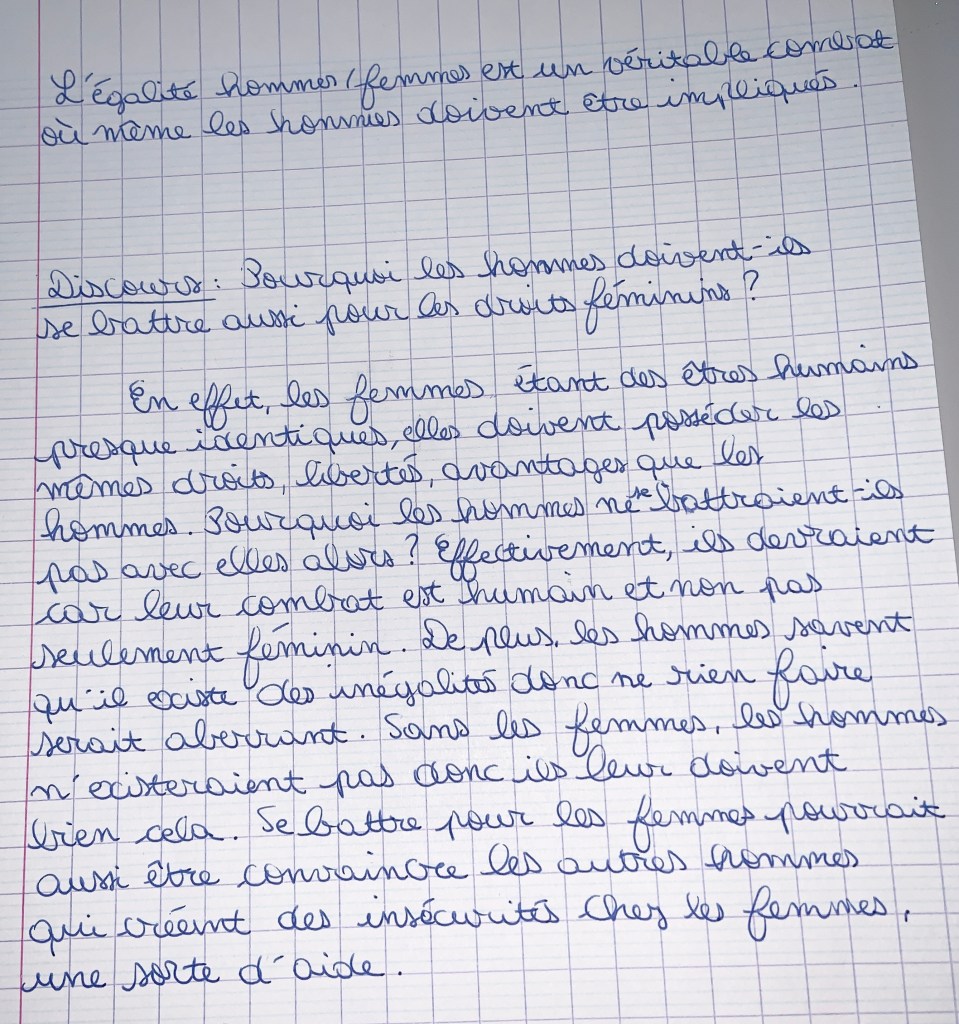 L'égalité hommes/femmes est un véritable combat
où même les hommes doivent être impliqués.
Discours : Pourquoi les hommes doivent-ils
se battre aussi pour les droits féminins ?
En effet, les femmes étant des êtres humains
presque identiques, elles doivent posséder les
mêmes droits, libertés, avantages que les
hommes. Pourquoi les hommes ne se battraient-ils
pas avec elles alors ? Effectivement, ils devraient
car leur combat est humain et non pas
seulement féminin. De plus, les hommes savent
qu'il existe des inégalités donc ne rien faire
serait aberrant. Sans les femmes, les hommes
n'existeraient pas donc ils leur doivent
bien cela. Se battre pour les femmes pourrait
aussi être convaincre les autres hommes
qui créent des insécurités chez les femmes,
une sorte d'aide.